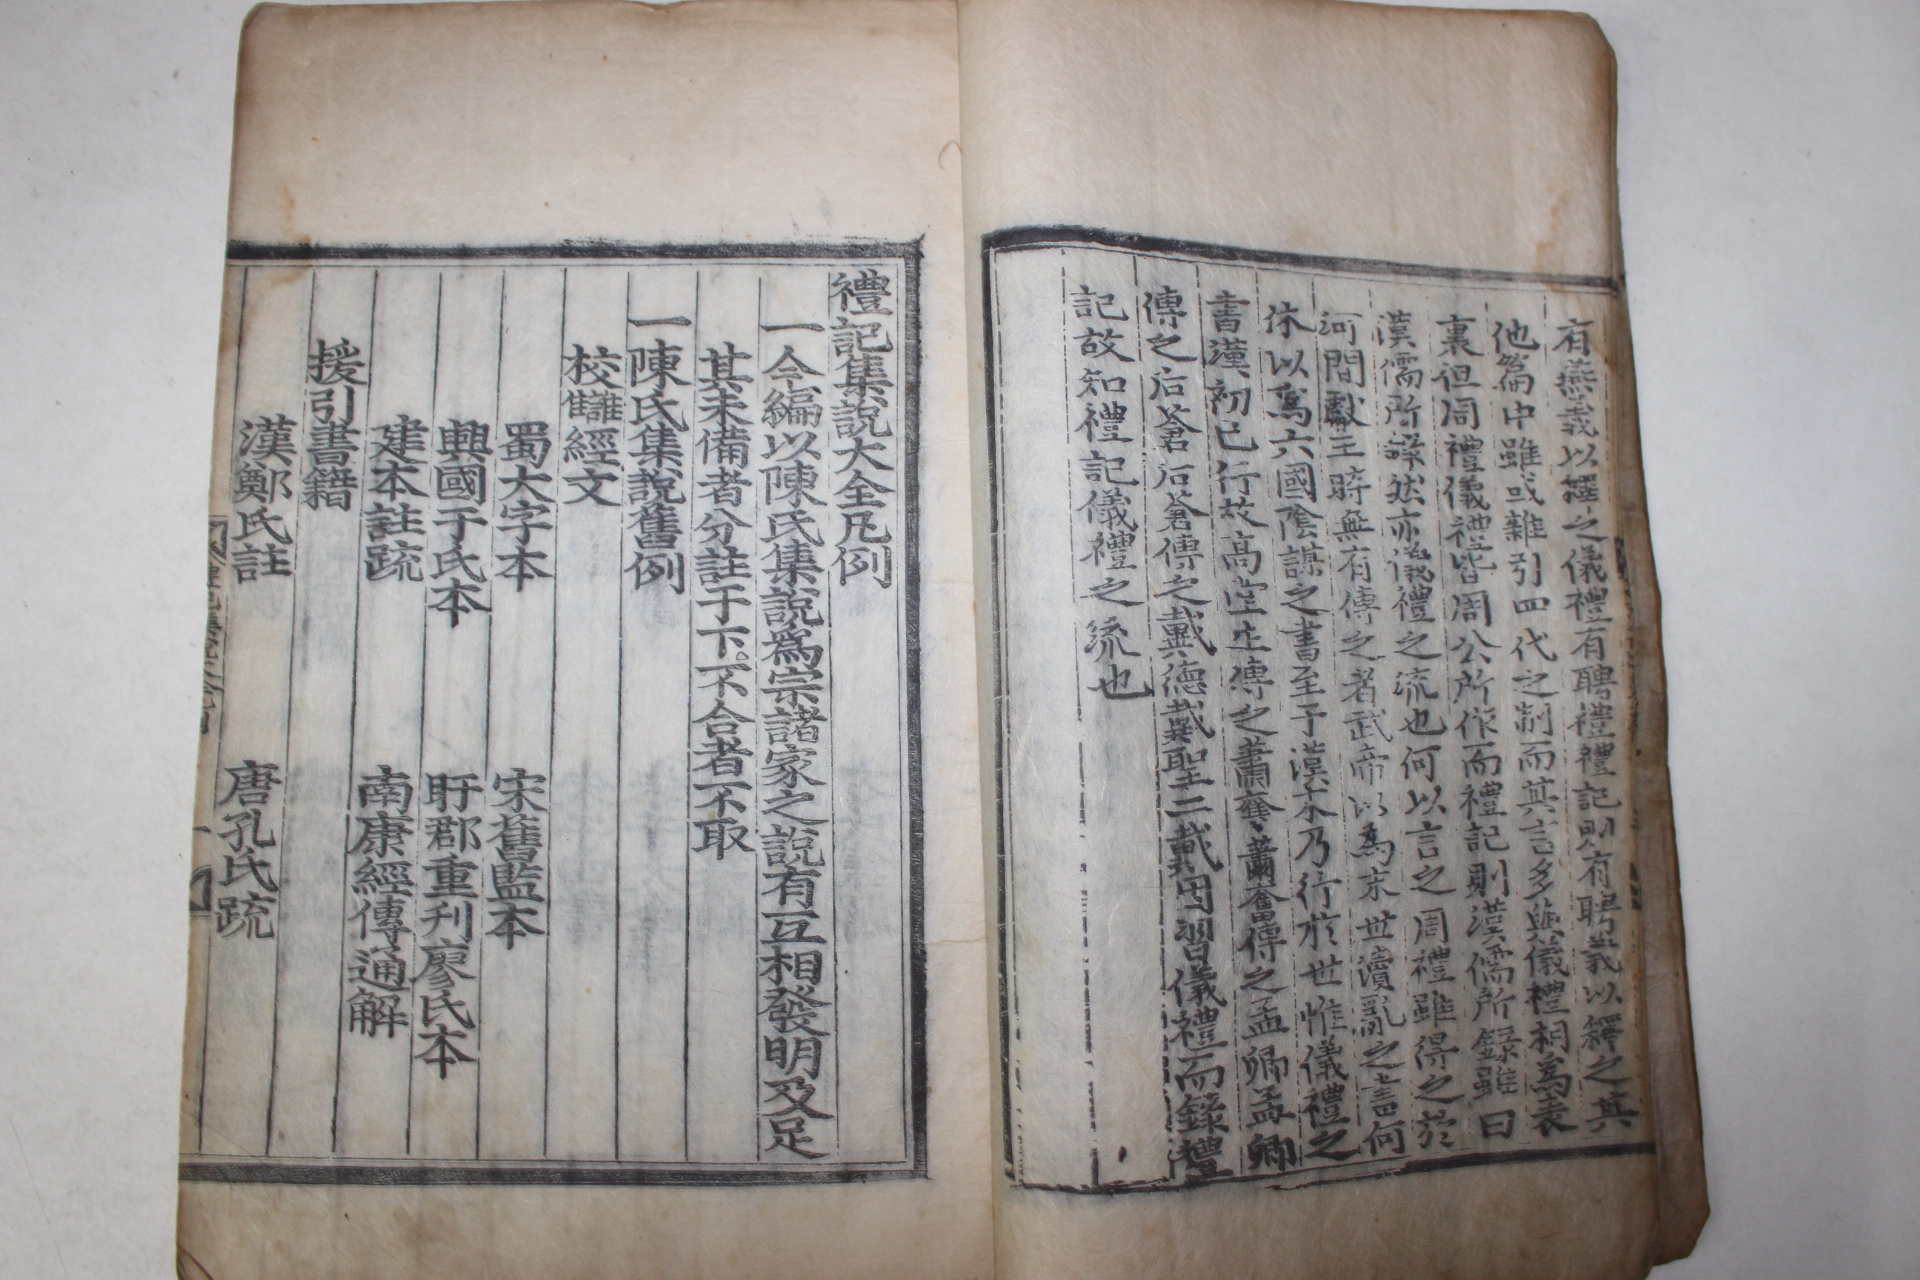 有燕義以釋之儀禮有聘禮禮記則有聘義以釋之其
他篇中雖或雜引四代之制而其言多與儀禮相爲表
裏但周禮儀禮皆周公所作而禮記則漢儒所錄雖曰
漢儒所錄然亦儀禮之流也何以言之周禮雖得之於
河間獻王時無有傳之者武帝以爲末世瀆亂之書何
休以爲六國陰謀之書至于漢末乃行於世惟儀禮之
書漢初已行故高堂生傳之蕭奮蕭奮傳之孟卿孟卿
傳之后蒼后蒼傳之戴德戴聖二戴因習儀禮而錄禮
記故知禮記儀禮之流也
禮記集說大全凡例
一今編以陳氏集說爲宗諸家之說有互相發明及足
其未備者分註于下不合者不取
一陳氏集說舊例
校讎經文
蜀大字本 宋舊監本
興國于氏本 盱郡重刊廖氏本
建本註䟽 南康經傳通解
援引書籍
漢鄭氏註 唐孔氏䟽